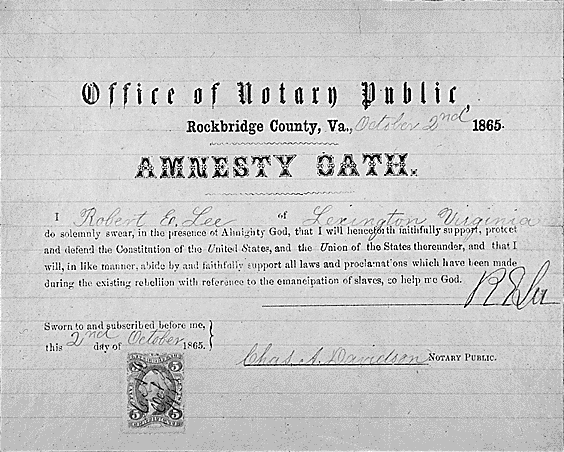 Office of Notary Public,
Rockbridge County, Va., October 2nd 1865.
AMNESTY OATH.
I Robert E. Lee of Lexington Virginia
do solemnly swear, in the presence of Almighty God, that I will henceforth faithfully support, protect
and defend the Constitution of the United States, and the Union of the States thereunder, and that I
will, in like manner, abide by and faithfully support all laws and proclamations which have been made
during the existing rebellion with reference to the emancipation of slaves, so help me God.
R E Lee
Sworn to and subscribed before me,
this 2nd day of October 1865.
Chas. A. Davidson NOTARY PUBLIC.
5 5
CERTIFICATE